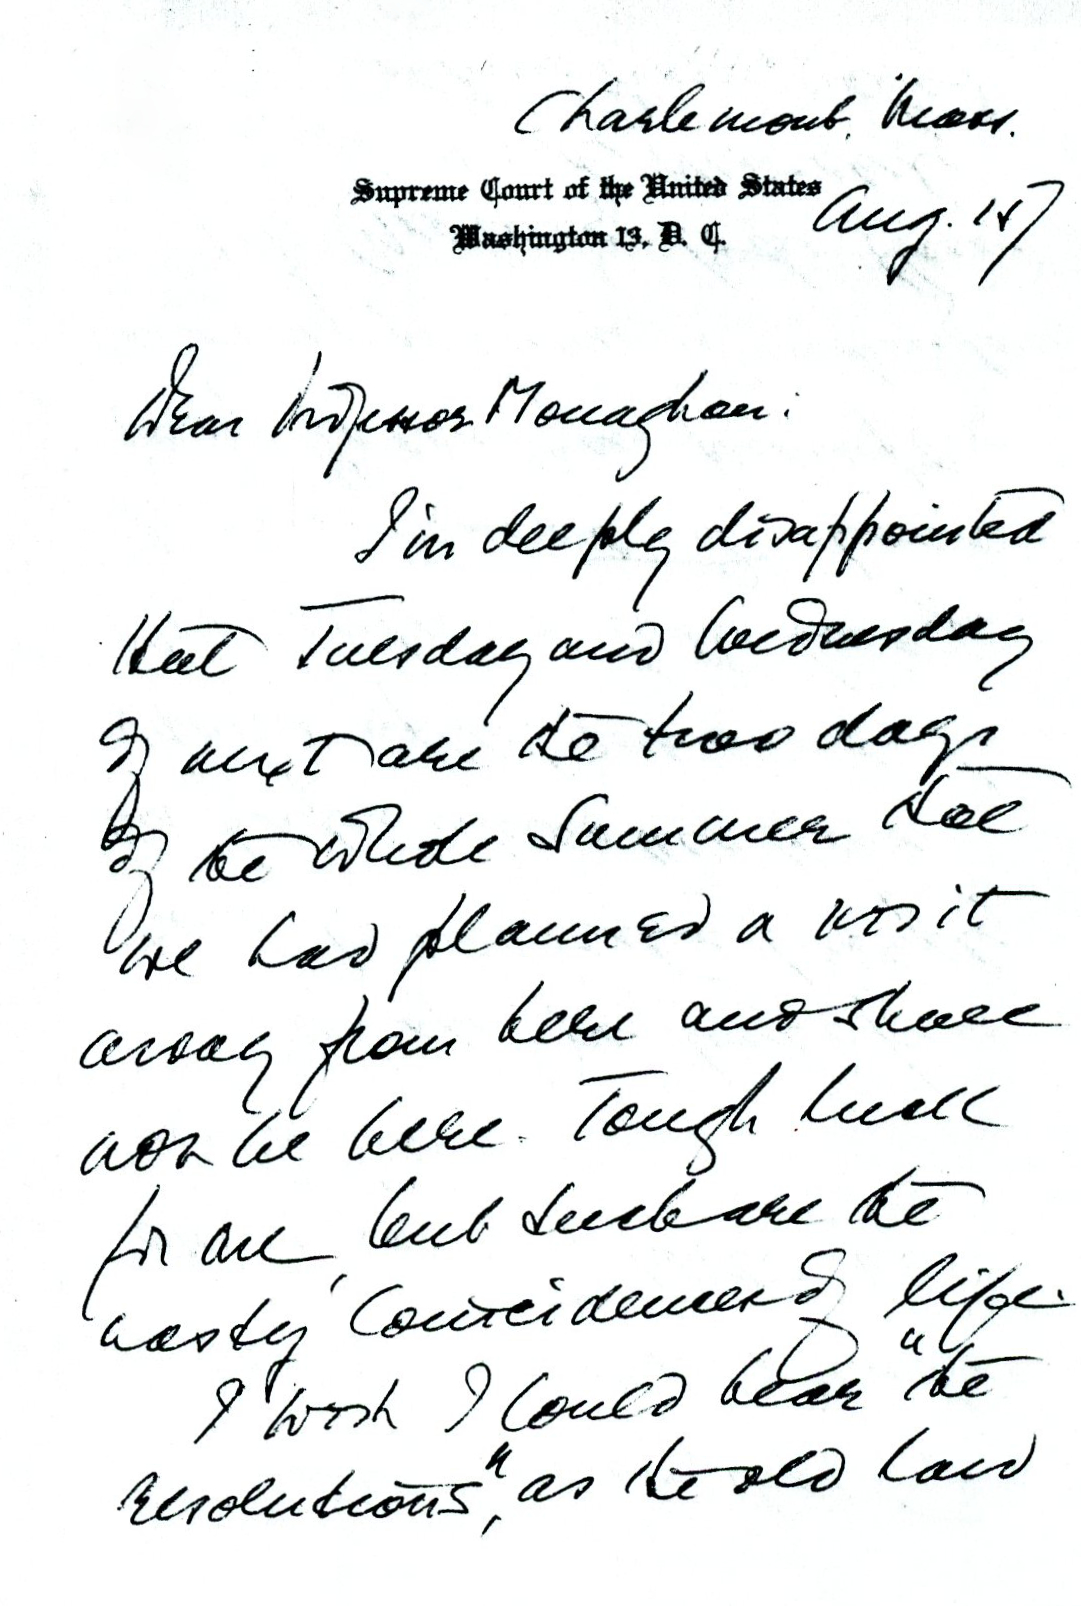 Charlemont, Mass.
Supreme Court of the United States
Washington 13, D. C.
Aug. 15/
Dear Professor Monaghan:
I'm deeply disappointed
that Tuesday and Wednesday
of next are the two days
of the whole Summer that
we had planned a visit
away from here and shall
not be here. Tough luck
for me, but such are the
nasty coincidences of life.
I wish I could hear "the
resolutions", as the old law